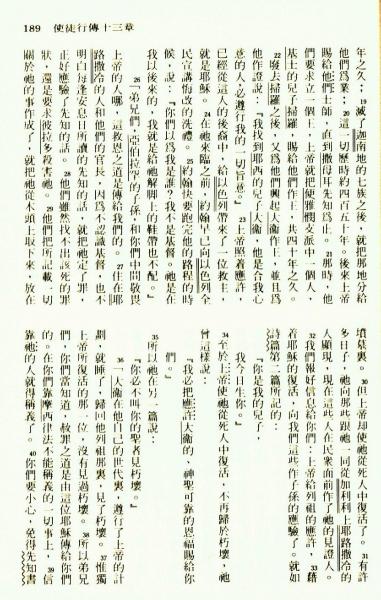 189 使徒行傳十三章
年之久。19滅迦南地的七族之後，就把那地分給
他們爲業；20這一切歷時約四百五十年。後來上帝
賜給他們士師，直到撒母耳先知爲止。21那時，他
們要求立一個王，上帝就把便雅憫支派中一個人，
基士的兒子掃羅，賜給他們作王，共四十年之久。
22廢去掃羅之後，又爲他們興起大衞作王，並且爲
他作證說：『我找到耶西的兒子大衞，他是合我心
意的人，必遵行我的一切旨意。』23上帝照着應許，
已經從這人的後裔中，給以色列帶來了一位救主，
就是耶穌。24在祂來臨之前，約翰早已向以色列全
民宣講悔改的洗禮。25約翰快要跑完他的路程的時
候，說：『你們以爲我是誰？我不是基督。祂是在
我以後來的，我就是給祂解腳上的鞋帶也不配。』
26「弟兄們，亞伯拉罕的子孫，和你們中間敬畏
上帝的人哪，這救恩之道是傳給我們的。27住在耶
路撒冷的人和他們的官長，因爲不認識基督，也不
明白每逢安息日所讀的先知的話，就把祂定了罪，
正好應驗了先知的話。28他們雖然找不出該死的罪
狀，還是要求彼拉多殺害祂。29他們把所記載，切
關於祂的事作成了，就把祂從木頭上取下來，放在
墳墓裏。30但上帝却使祂從死人中復活了。31有許
多日子，祂向那些跟祂一同從加利利上耶路撒冷的
人顯現，現在這些人在民衆面前作了祂的見證人。
32我們報好信息給你們：上帝給列祖的應許，33藉
着耶穌的復活，向我們這些作子孫的應驗了。就如
詩篇第二篇所記的：
『你是我的兒子，
我今日生你。』
34至於上帝使祂從死人中復活，不再歸於朽壞，祂
曾這樣說：
『我必把應許大衞的，神聖可靠的恩福賜給你
們。』
35所以祂在另一篇說：
『你必不叫你的聖者見朽壞。』
36「大衞在他自己的世代裏，遵行了上帝的計
劃，就睡了，歸回他列祖那裏，見了朽壞。37惟獨
上帝所復活的那一位，沒有見過朽壞。38所以弟兄
們，你們當知道，赦罪之道是由這位耶穌傳給你們
的。在你們靠摩西律法不能稱義的一切事上，39信
靠祂的人就得稱義了。40你們要小心，免得先知書